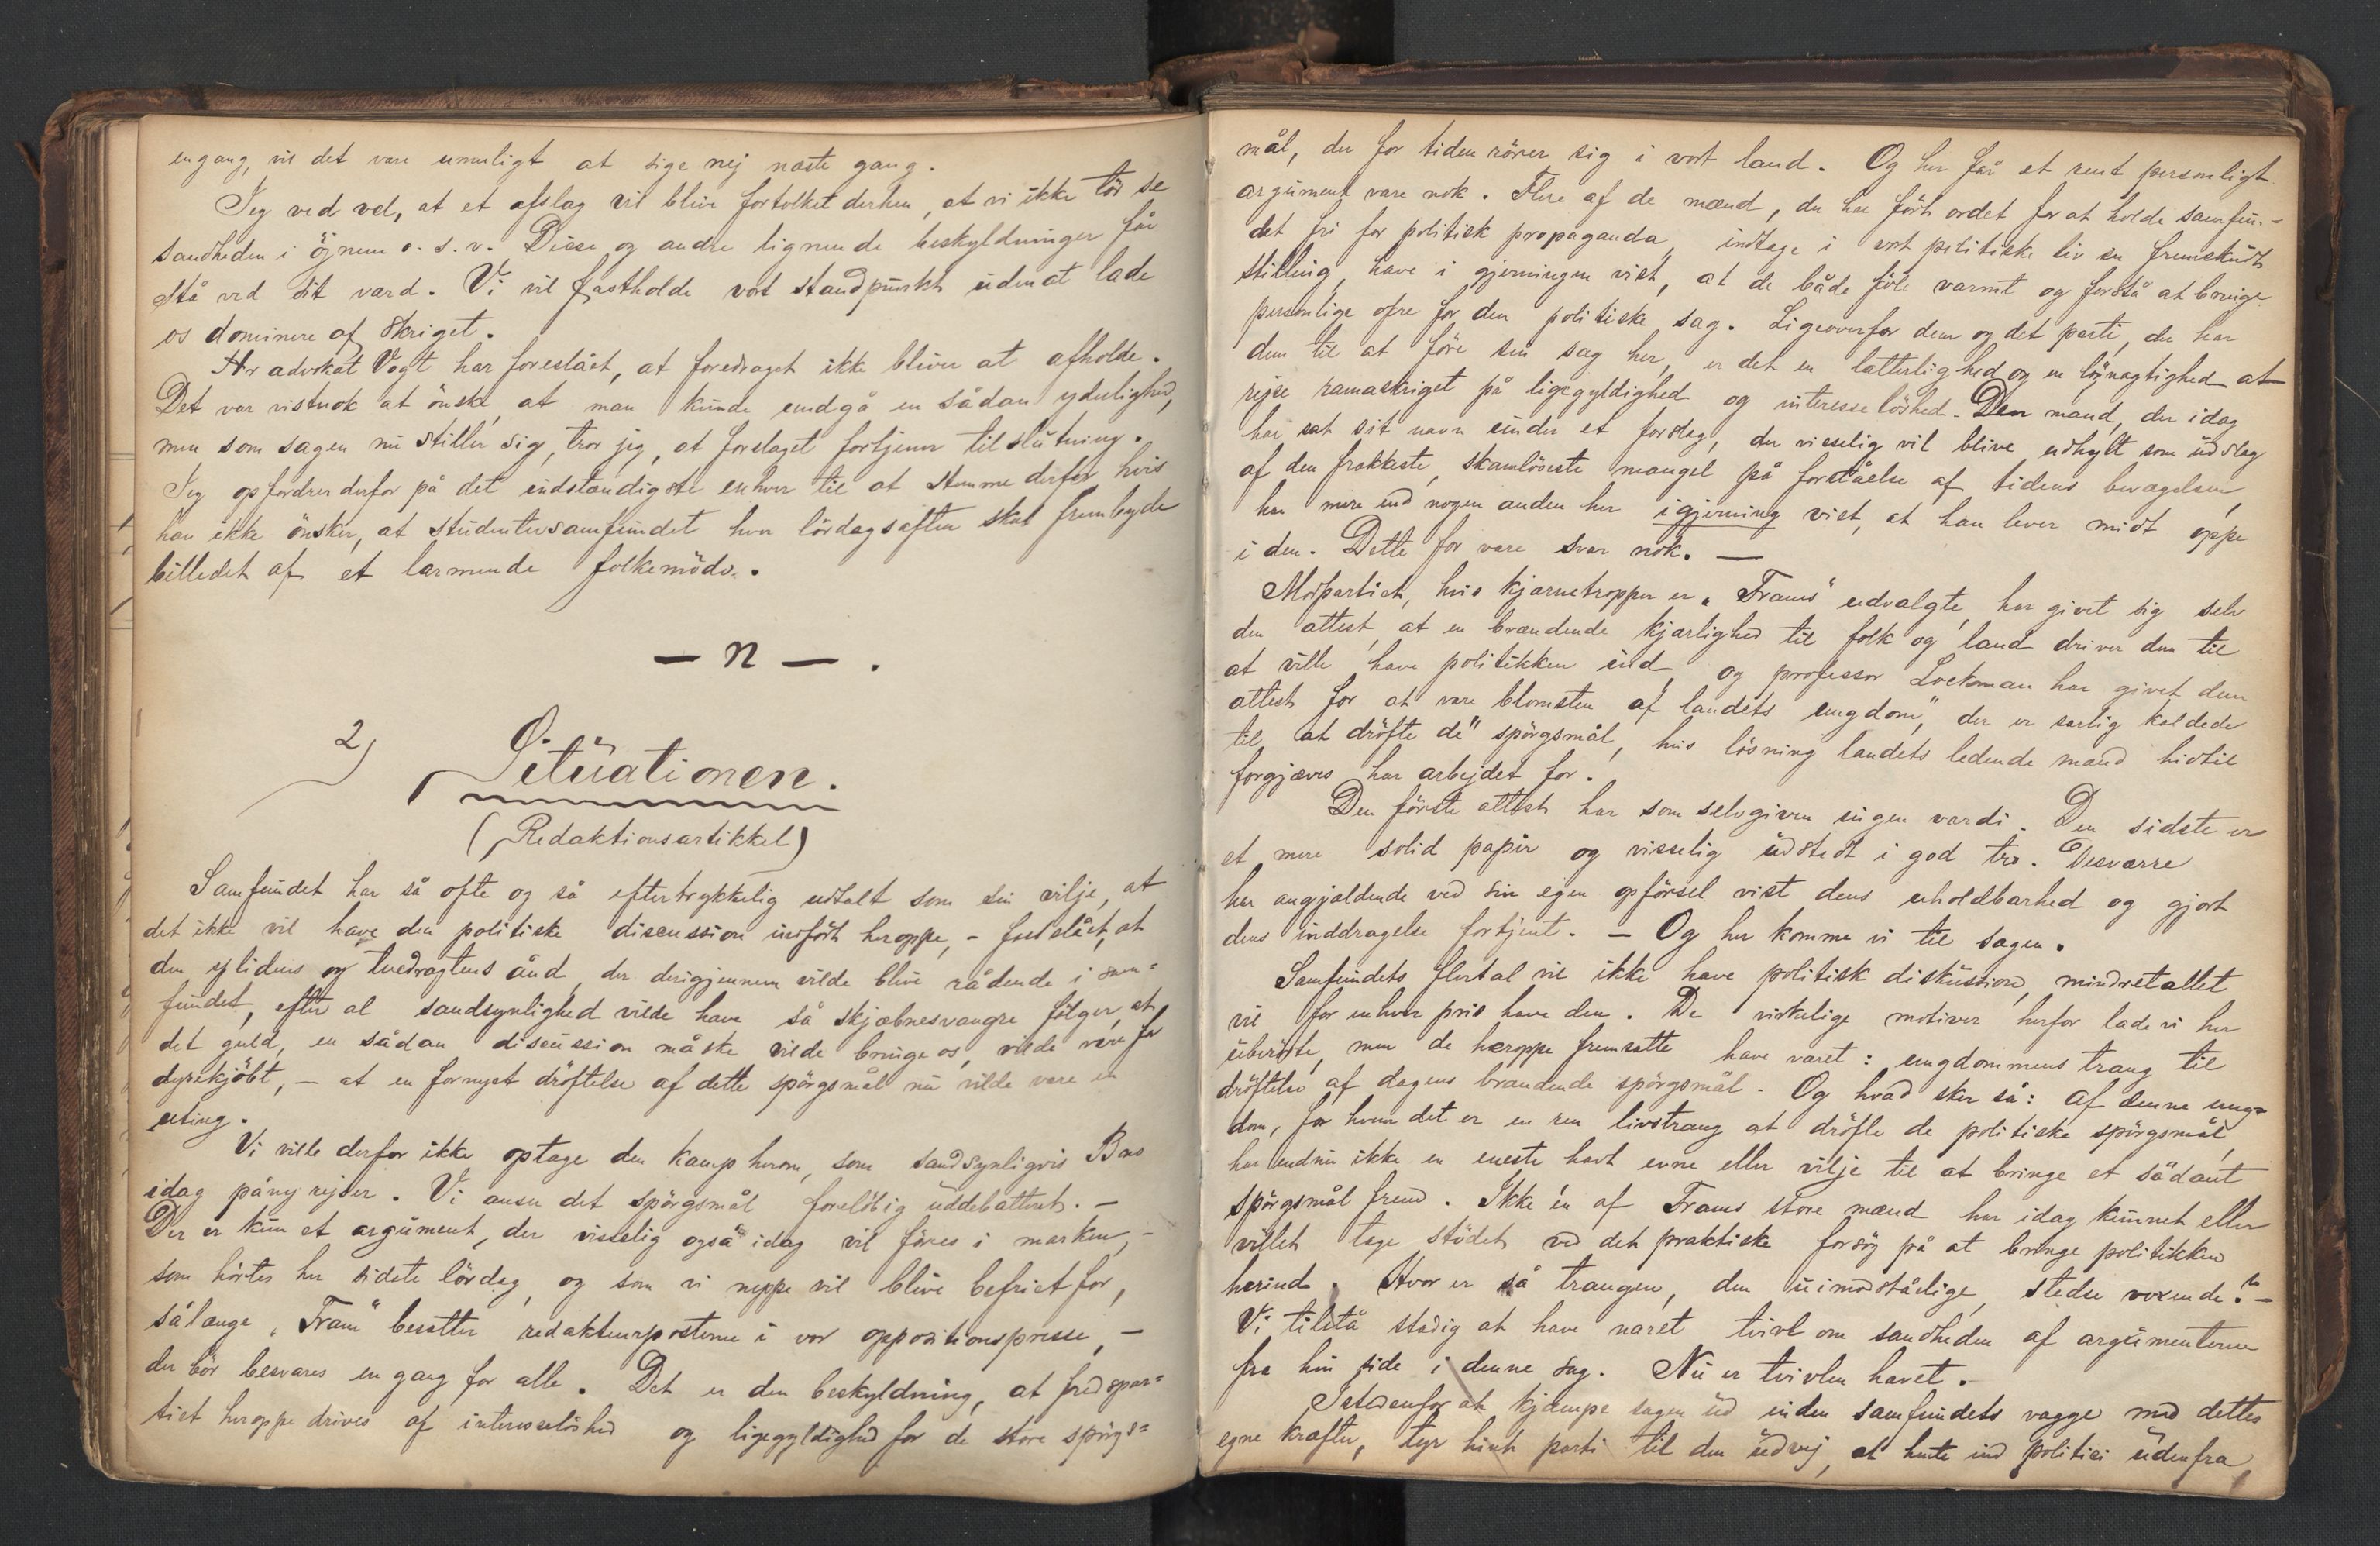 engang, vil det være umuligt at sige nej næste gang.
Jeg ved vel, at et afslag vil blive fortolket derhen, at vi ikke tör se
sandheden i öjnene o. s. v. Disse og andre lignende beskyldninger får
stå ved sit værd. Vi vil fastholde vort standpunkt uden at lade
os dominere af skriget.
Hr advokat Vogt har foreslået, at foredraget ikke bliver at afholde.
Det var vistnok at önske, at man kunde undgå en sådan yderlighed,
men som sagen nu stiller sig, tror jeg, at forslaget fortjener tilslutning.
Jeg opfordrer derfor på det indstændigste enhver til at stemme derfor, hvis
han ikke önsker, at studentersamfundet hver lördagsaften skal frembyde
billedet af et larmende folkemöde.
— n — .
2)
Situationen.
(Redaktionsartikkel)
Samfundet har så ofte og så eftertrykkelig udtalt som sin vilje, at
det ikke vil have den politiske discussion indfört heroppe, – fastslået, at
den splidens og tvedragtens ånd, der derigjennem vilde blive rådende i sam-
fundet, efter al sandsynlighed vilde have så skjæbnesvangre fölger, at
det guld, en sådan discussion måske vilde bringe os, vilde være for
dyrekjöbt, – at en fornyet dröftelse af dette spörgsmål nu vilde være en
uting.
Vi ville derfor ikke optage den kamp herom, som sandsynligvis Bas
idag påny rejser. Vi anser det spörgsmål forelöbig uddebatteret. –
Der er kun et argument, der visselig også idag vil föres i marken, –
som hörtes her sidste lördag, og som vi neppe vil blive befriet for,
sålænge „Fram" besætter redakteurposterne i vor oppositionspresse, –
der bör besvares en gang for alle. Det er den beskyldning, at fredspar-
tiet heroppe drives af interesselöshed og ligegyldighed for de store spörgs-
mål, der for tiden rörer sig i vort land. Og her får et rent personligt
argument være nok. Flere af de mænd, der har fört ordet for at holde samfun-
det fri for politisk propaganda, indtage i vort politiske liv en fremskudt
stilling, have i gjerningen vist, at de både föle varmt og forstå at bringe
personlige ofre for den politiske sag. Ligeoverfor dem og det parti, der har
dem til at före sin sag her, er det en latterlighed og en lögnagtighed at
rejse ramaskriget på ligegyldighed og interesselöshed. Den mand, der idag
har sat sit navn under et forslag, der visselig vil blive udhylt som udslag
af den frækkeste, skamlöseste mangel på forståelse af tidens bevægelser,
har mere end nogen anden her igjerning vist, at han lever midt oppe
i den. Dette får være svar nok. —
Modpartiet, hvis kjærnetropper er „Frams" udvalgte, har givet sig selv
den attest, at en brændende kjærlighed til folk og land driver dem til
at ville have politikken ind, og professor Lochman har givet dem
attest for at være blomsten af landets ungdom", der er særlig kaldede
til at dröfte de" spörgsmål, hvis lösning landets ledende mænd hidtil
forgjæves har arbejdet for.
Den förste attest har som selvgiven ingen værdi. Den sidste er
et mere solid papir og visselig udstedt i god tro. Desværre
har angjældende ved sin egen opförsel vist dens uholdbarhed og gjort
dens inddragelse fortjent. – Og her komme vi til sagen.
Samfundets flertal vil ikke have politisk diskussion, mindretallet
vil for enhver pris have den. De virkelige motiver herfor lade vi her
uberörte, men de heroppe fremsatte have været: ungdommens trang til
dröftelse af dagens brændende spörgsmål. Og hvad sker så: af denne ung-
dom, for hvem det er en ren livstrang at dröfte de politiske spörgsmål,
har endnu ikke en eneste havt evne eller vilje til at bringe et sådant
spörgsmål frem. Ikke én af Frams store mænd har idag kunnet eller
villet tage stödet ved det praktiske forsög på at bringe politikken
herind. Hvor er så trangen, den uimodståelige, stedse voxende? –
Vi tilstå stadig at have næret tvivl om sandheden af argumenterne
fra hin side i denne sag. Nu er tvivlen hævet.
Istedenfor at kjæmpe sagen ud inden samfundets vægge med dettes
egne kræfter, tyr hint parti til den udvej, at hente ind politici udenfra,